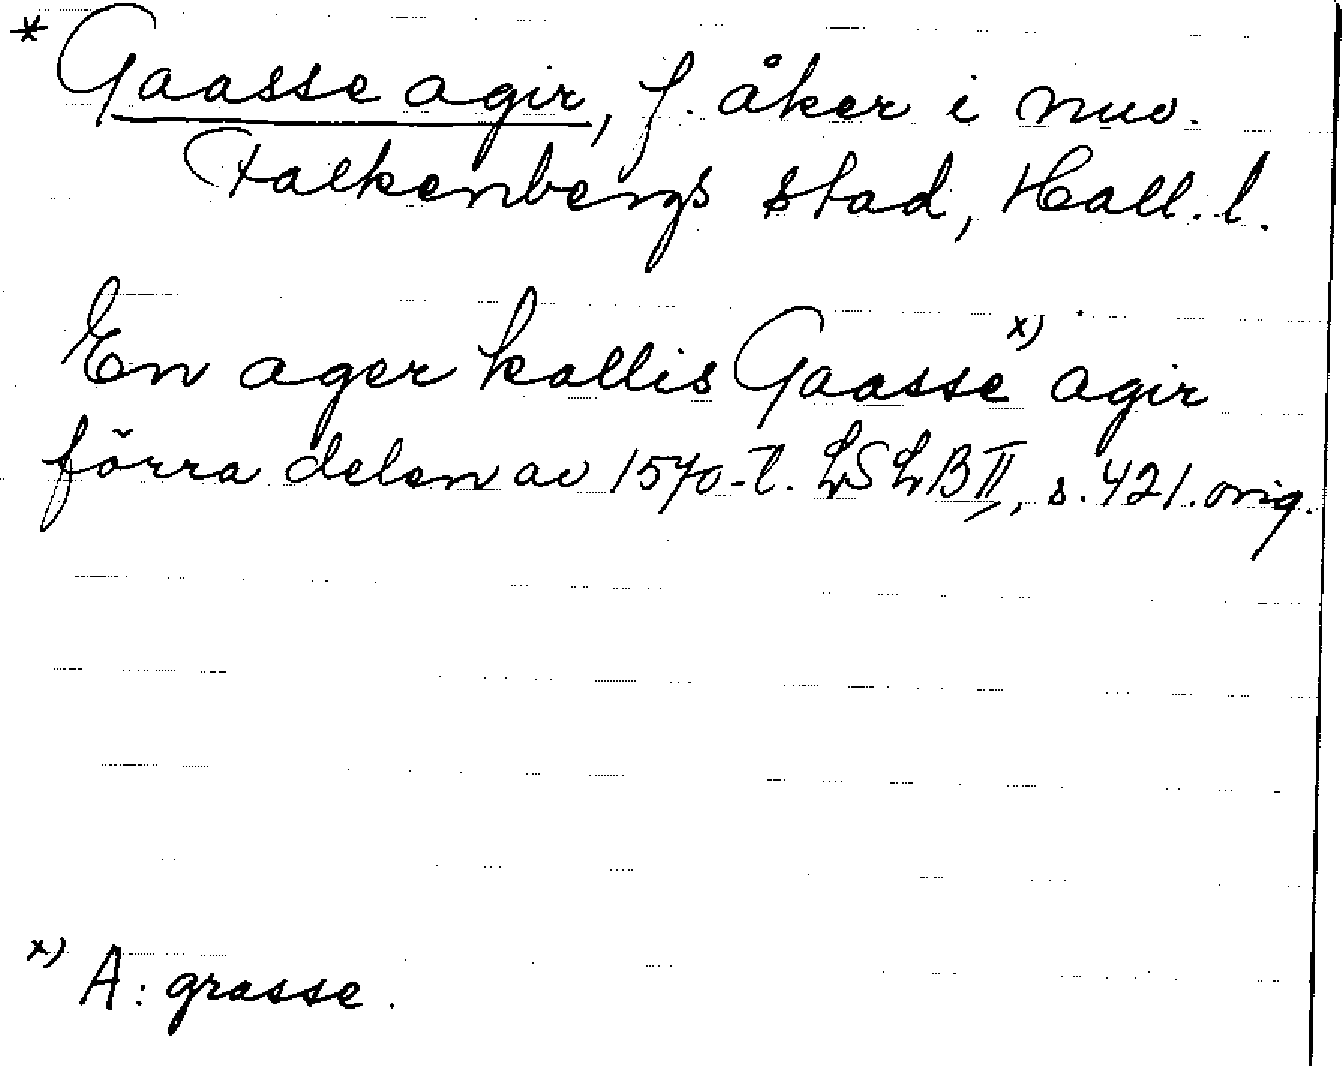 * Gaasse agir, f. åker i nuv.
Falkenbergs stad, Hall. l.
En ager kallis Gaasse x) agir
förra delen av 1570-t. LSLB II, s. 421. orig.
x) A: grasse.